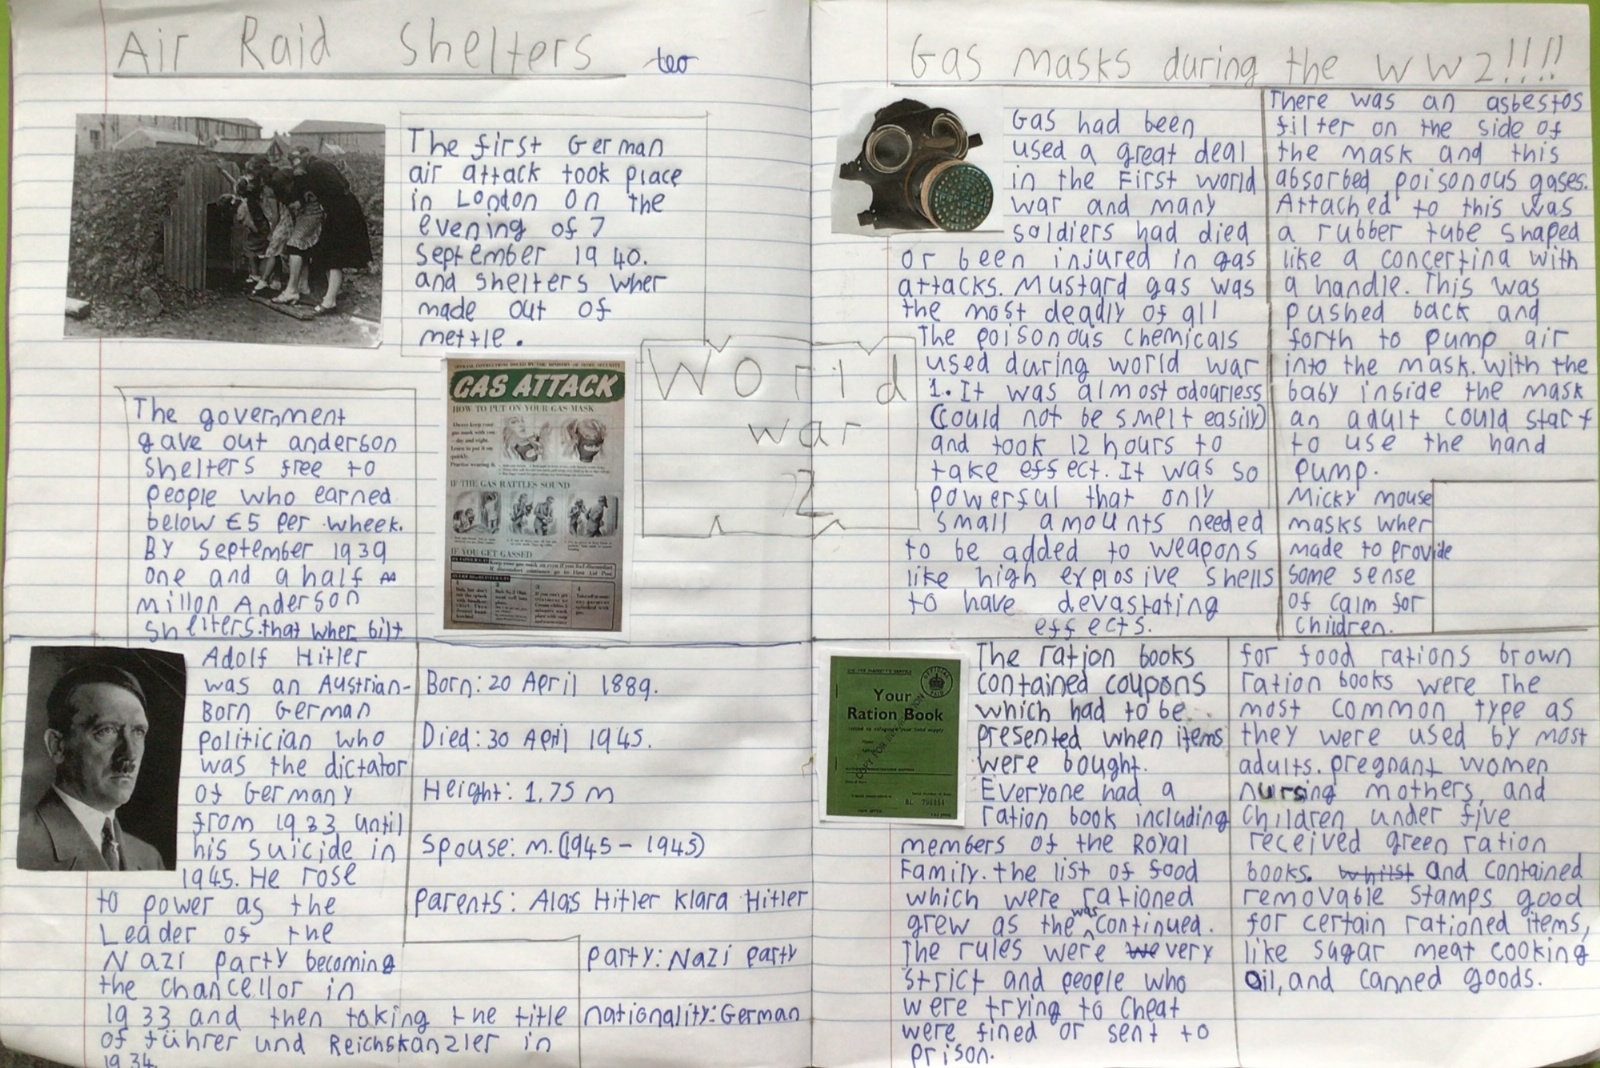 Air Raid Shelters
teo
The first German
air attack took place
in London on the
evening of 7
September 1940.
and shelters wher
made out of
mettle.
The government
gave out anderson
shelters free to
people who earned
below €5 per wheek.
By September 1939
one and a half
millon Anderson
shelters.that wher bilt
GAS ATTACK
HOW TO PUT ON YOUR GAS MASK
Always keep your
gas mask with you
– day and night.
Learn to put it on
quickly.
Practise wearing it.
IF THE GAS RATTLES SOUND
IF YOU GET GASSED
World
war
2
Adolf Hitler
was an Austrian-
Born German
politician who
was the dictator
of Germany
from 1933 until
his suicide in
1945. He rose
to power as the
Leader of the
Nazi party becoming
the chancellor in
1933 and then taking the title
of führer und Reichskanzler in
1934.
Born: 20 April 1889.
Died: 30 April 1945.
Height: 1.75 m
Spouse: m. (1945 - 1945)
parents: Alas Hitler Klara Hitler
party: Nazi party
nationality: German
Gas masks during the WW2!!!!
Gas had been
used a great deal
in the First world
war and many
soldiers had died
or been injured in gas
attacks. Mustard gas was
the most deadly of all
The poisonous chemicals
used during world war
1. It was almost odourless
(could not be smelt easily)
and took 12 hours to
take effect. It was so
powerful that only
small amounts needed
to be added to weapons
like high explosive shells
to have devastating
effects.
There was an asbestos
filter on the side of
the mask and this
absorbed poisonous gases.
Attached to this was
a rubber tube shaped
like a concertina with
a handle. This was
pushed back and
forth to pump air
into the mask. with the
baby inside the mask
an adult could start
to use the hand
pump.
Micky mouse
masks wher
made to provide
some sense
of calm for
children.
Your
Ration Book
The ration books
contained coupons
which had to be
presented when items
were bought.
Everyone had a
ration book including
members of the Royal
Family. the list of food
which were rationed
grew as the was continued.
The rules were we very
strict and people who
were trying to cheat
were fined or sent to
prison.
for food rations brown
ration books were the
most common type as
they were used by most
adults. pregnant women
nursing mothers, and
children under five
received green ration
books. whilst and contained
removable stamps good
for certain rationed items,
like sugar meat cooking
oil, and canned goods.